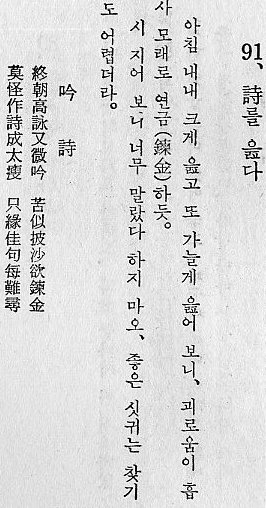 91、詩를 읊다
아침 내내 크게 읊고 또 가늘게 읊어 보니、괴로움이 흡
사 모래로 연금(鍊金)하듯。
시 지어 보니 너무 말랐다 하지 마오、좋은 싯귀는 찾기
도 어렵더라。
吟詩
終朝高詠又微吟 苦似披沙欲鍊金
莫怪作詩成太瘦 只緣佳句每難尋